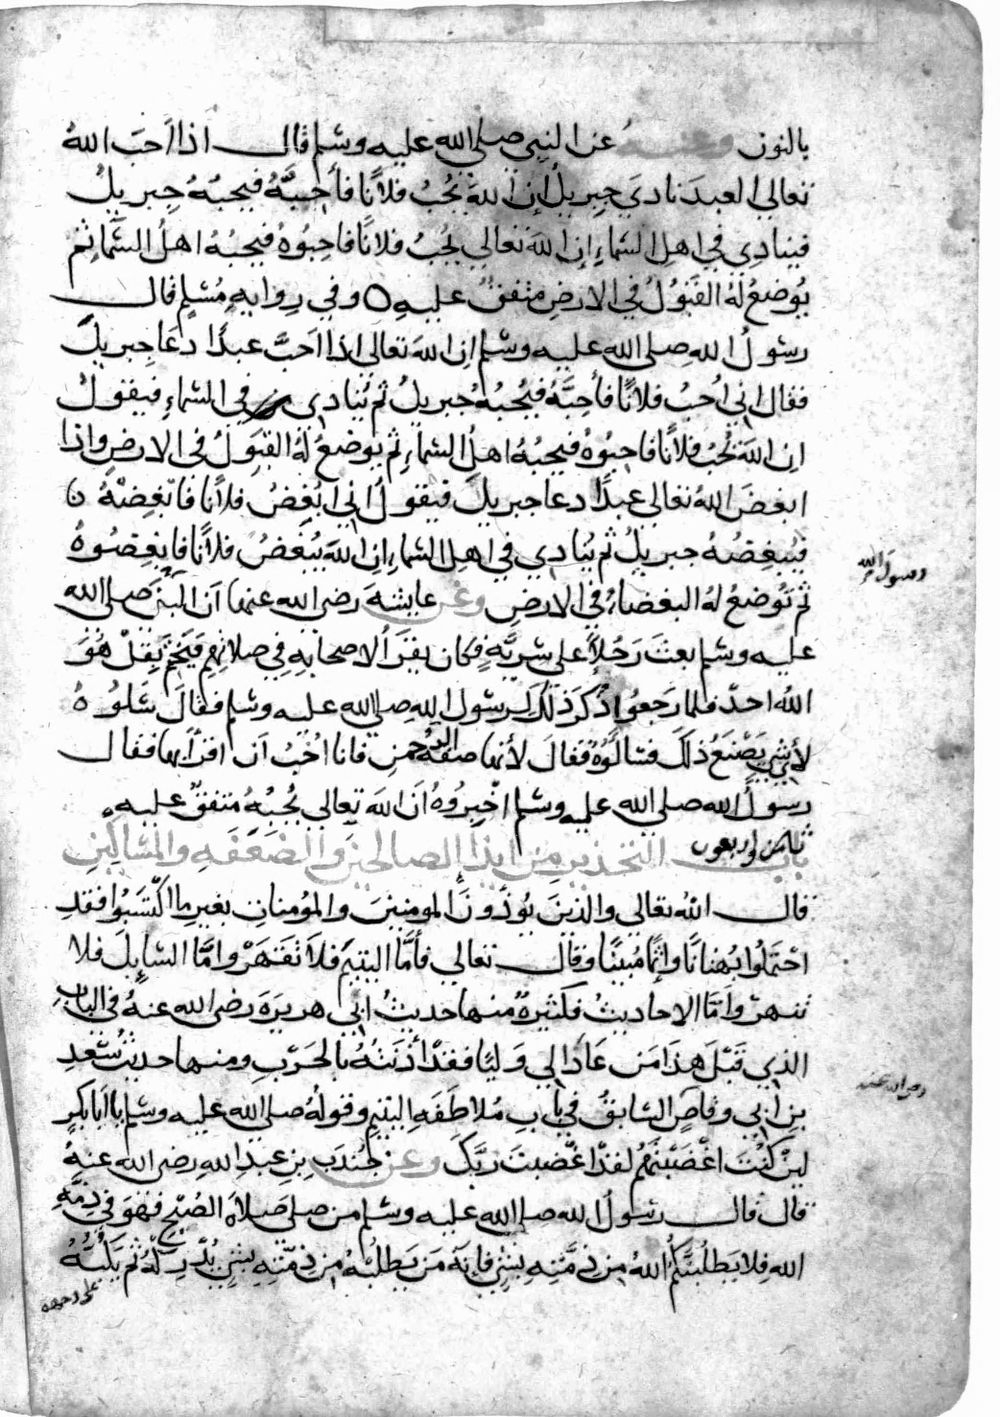 بالنون وعنه عن النبي صلى الله عليه وسلم قال اذا احَبّ اللهُ
تعالى العبدَ نادىَ جِبريلُ إن اللهَ يحُبُ فلانًا فأحببَّهُ فيحبُهُ جبريلُ
فينادِي في اهلِ السَماءِ إن اللهَ تعالى يُحِبُ فلانًا فاحِبُوهُ فيحِبُهُ اهلُ السَّماءِ ثم
يُوضعُ لَهُ القَبُولُ في الارضِ متفقٌ عليهِ ٥ وفي رِوايةٍ مُسْلمٍ قال
رسُولُ اللهِ صلى الله عليه وسلم إن اللهَ تعالى اذا احَبَّ عبدًا دعَا جِبريلَ
فقال اني اُحِبُ فلانًا فأحِبَّهُ فيُحِبُهُ جبريلُ ثم يُنادِي في السَماءِ فيقولُ
ان اللهَ يُحِبُ فلانًا فاحِبُوهُ فيحِبُهُ اهلُ السَماءِ ثم يوضعُ لَهُ القَبولُ في الارضِ واذا
ابغضَ اللهُ تعالى عبدًا دعا جبريلَ فيقولُ اني ابُغِضُ فلانًا فابْغِضْهُ
فيُبغِضُهُ جبريلُ ثم يُنادِي في اهلِ السَماءِ إن اللهَ يُبْغِضُ فلانًا فابغِضُوهُ
ثم تُوضعُ لهُ البغضاءُ في الارضِ وعن عايشةَ رضي الله عنها اَن النبيَ صلى الله
رسول الله
عليه وسلم بعثَ رَجُلاً على سَرِيَّةٍ فكان يقرَأُ لاصحابِهِ في صلاتِهِم فَيَختِمُ بقُلْ هُوَ
اللهُ احدٌ فلما رَجَعُوا ذُكِرَ ذلِكَ لرسُولِ اللهِ صلى الله عليه وسلم فقالَ سَلُوهُ
لأيِّ شيءٍ يَصْنَعُ ذلكَ فسَالُوهُ فقالَ لأنها صفَةُ الرحمنِ فانا اُحِبُ اَن اقرأ بها فقال
رسُولُ اللهِ صلى الله عليه وسلم اخْبِرُوهُ اَن اللهَ تعالى يُحِبُّهُ مُتفقٌ عليهِ
ثامن واربعون
باب التحذير من ايذا الصالحين والضعفه والمساكين
قال اللهُ تعالى والذينَ يُوذُونَ المومنينَ والمؤمناتِ بغيرِ ما اكْتَسَبُوا فقدِ
احْتملُوا بُهتانًا وإثمًا مُبينًا وقال تعالى فأمَّا اليتيمَ فَلاَ تَقهَرْ وامَّا السَّايِلَ فلا
تنهرْ وأمَّا الاحاديثُ فكثيرةٌ منها حديثُ ابي هريرَةَ رضي الله عنهُ في البابِ
الذي قَبْلَ هذَا مَن عَادَا لي وَليًا فقدْ أذنتُهُ بالحَرْبِ ومنها حديثُ سَعدِ
رضي الله عنه
بن ابي وقاصٍ السَابِقُ في بابِ مُلاطَفَةِ اليتيمِ وقولُهُ صلى الله عليه وسلم يا اَبا بكرٍ
لين كُنْتَ اغْضَبْتَهُم لقدْ اغْضَبتَ رَبَّكَ وعن جُندَبِ بنِ عبدِ اللهِ رضي الله عنهُ
قال قال رسُولُ اللهِ صلى الله عليه وسلم من صلى صَلاةَ الصُبْحِ فَهُوَ في ذِمَّةِ
اللهِ فلا يَطلُبَنَّكُمُ اللهُ من ذِمَّتِهِ بشيءٍ فإنَّهُ مَن يَطلُبْهُ مِن ذِمَّتِهِ بشيءٍ يُدْرِكْهُ ثم يَكُبَّهُ
على وجهه